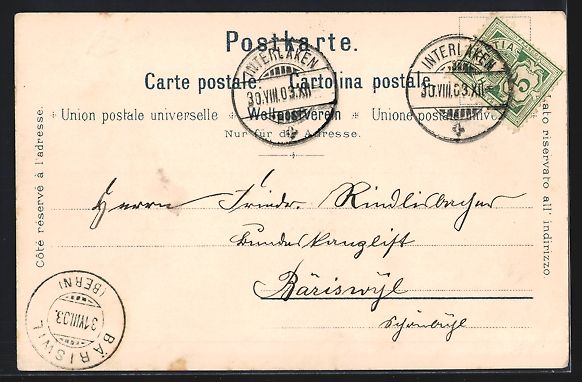 Postkarte.
Carte postale. Cartolina postale.
Union postale universelle Weltpostverein Unione postale univers
Nur für die Adresse.
Côté réservé à l'adresse.
lato riservato all'indirizzo
INTERLAKEN
30.VIII.03.XII
INTERLAKEN
30.VIII.03.XII
5
Herrn Friedr. Rindlisbacher
Bundeskanzlist
Bäriswyl
Schönbühl
BÄRISWIL
(BERN)
31.VIII.03.